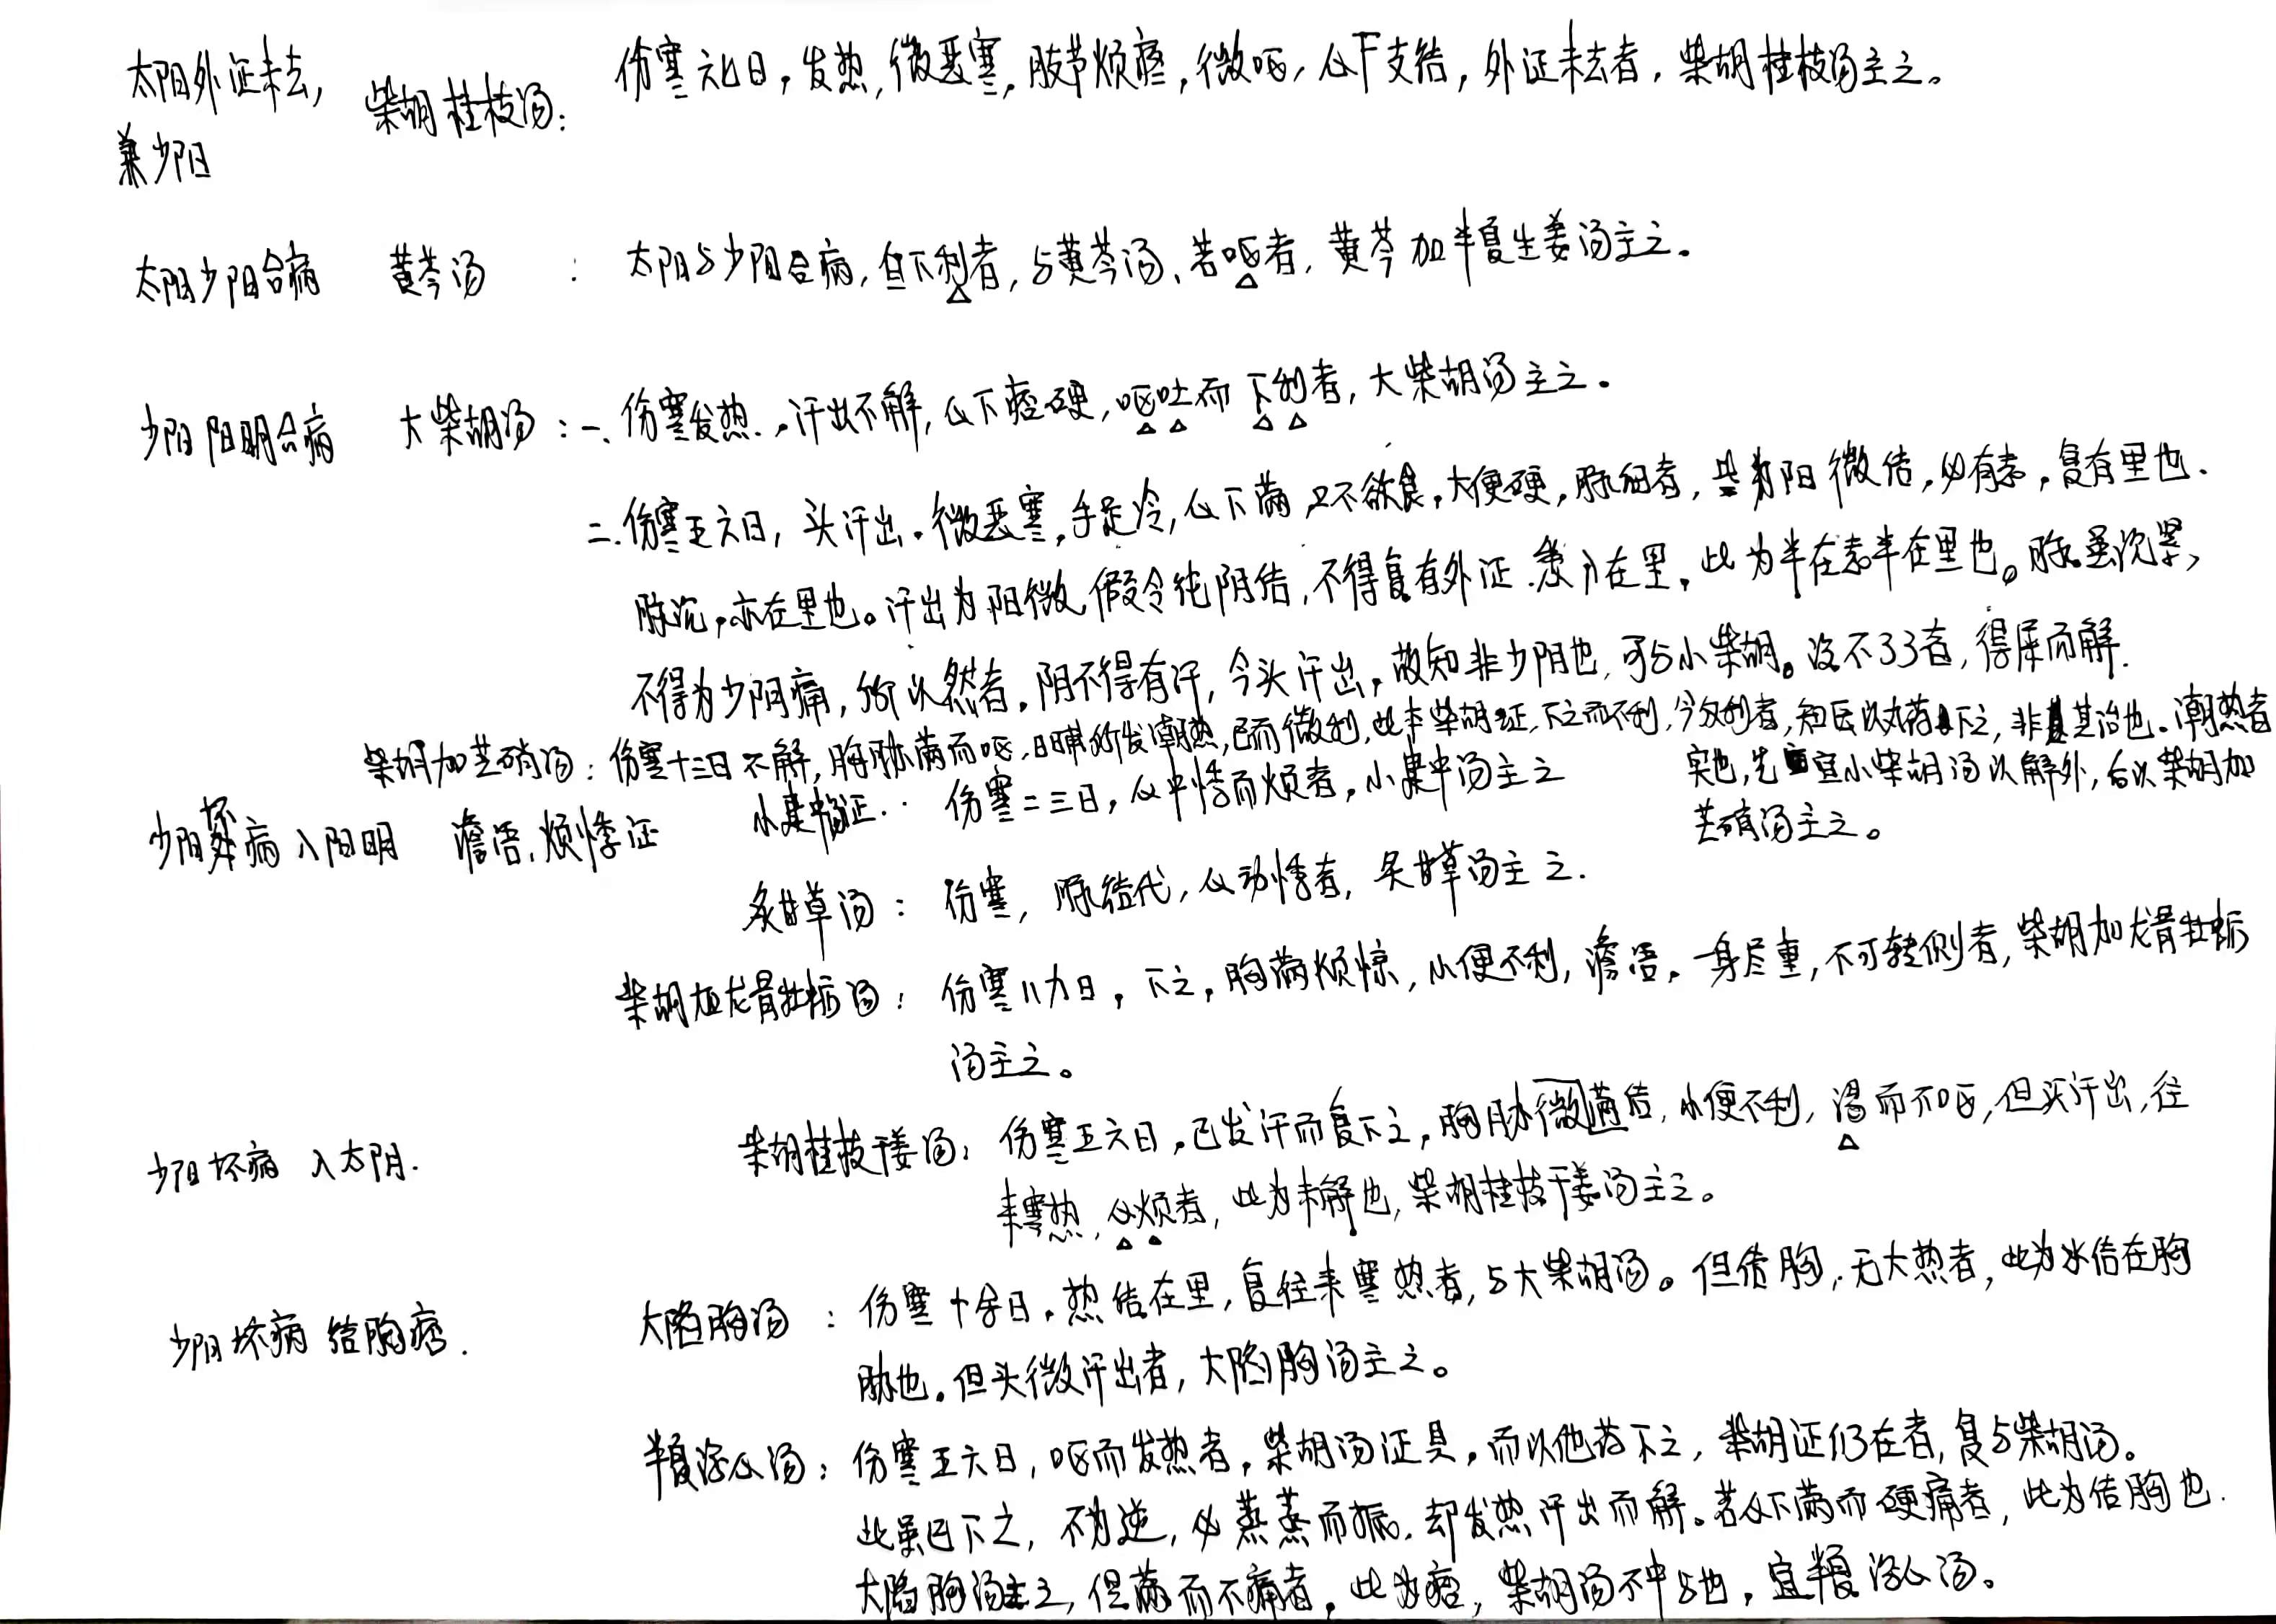 太阳外证未去,
兼少阳
柴胡桂枝汤:
伤寒六七日,发热,微恶寒,肢节烦疼,微呕,心下支结,外证未去者,柴胡桂枝汤主之。
太阳少阳合病 黄芩汤 : 太阳与少阳合病,自下利者,与黄芩汤、若呕者,黄芩加半夏生姜汤主之。
少阳阳明合病 大柴胡汤:一、伤寒发热,汗出不解,心下痞硬,呕吐而下利者,大柴胡汤主之。
二.伤寒五六日,头汗出。微恶寒,手足冷,心下满,口不欲食,大便硬,脉细者,此为阳微结,必有表,复有里也.
脉沉,亦在里也。汗出为阳微,假令纯阴结,不得复有外证.悉入在里,此为半在表半在里也。脉虽沉紧,
不得为少阴病,所以然者,阴不得有汗,今头汗出,故知非少阴也,可与小柴胡。设不了了者,得屎而解.
柴胡加芒硝汤:伤寒十三日不解,胸胁满而呕,日晡所发潮热,已而微利,此本柴胡证,下之而不利,今反利者,知医以丸药下之,非其治也.潮热者
实也,先宜小柴胡汤以解外,后以柴胡加
芒硝汤主之。
少阳坏病入阳明 谵语,烦悸证 小建中汤证: 伤寒二三日,心中悸而烦者,小建中汤主之
炙甘草汤: 伤寒,脉结代,心动悸者,炙甘草汤主之.
柴胡加龙骨牡蛎汤: 伤寒八九日,下之,胸满烦惊,小便不利,谵语,一身尽重,不可转侧者,柴胡加龙骨牡蛎
汤主之。
少阳坏病入太阴. 柴胡桂枝干姜汤: 伤寒五六日,已发汗而复下之,胸胁微满结,小便不利,渴而不呕,但头汗出,往
来寒热,心烦者,此为未解也,柴胡桂枝干姜汤主之。
少阳坏病 结胸痞. 大陷胸汤: 伤寒十余日,热结在里,复往来寒热者,与大柴胡汤。但结胸,无大热者,此为水结在胸
胁也.但头微汗出者,大陷胸汤主之。
半夏泻心汤: 伤寒五六日,呕而发热者,柴胡汤证具,而以他药下之,柴胡证仍在者,复与柴胡汤。
此虽已下之,不为逆,必蒸蒸而振.却发热汗出而解。若心下满而硬痛者,此为结胸也.
大陷胸汤主之,但满而不痛者,此为痞,柴胡汤不中与也,宜半夏泻心汤。